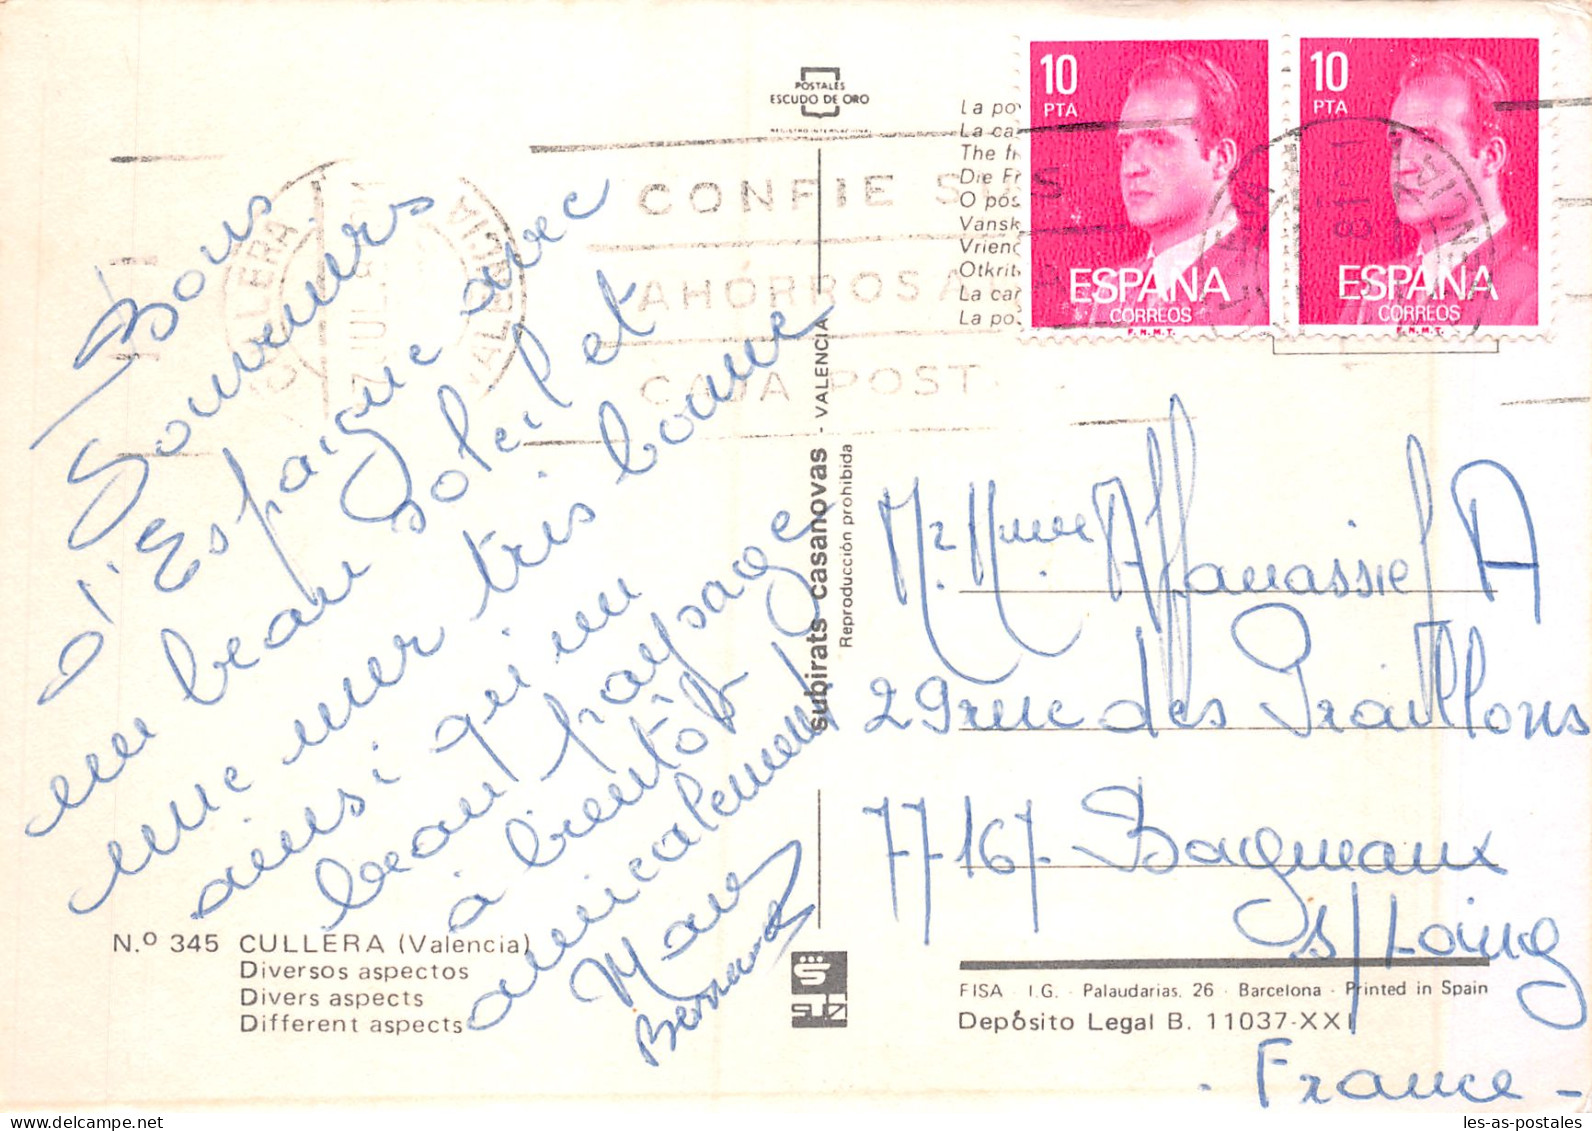 Bons
Souvenirs
d'Espagne avec
un beau soleil et
une mer très bonne
ainsi qu'un
beau paysage
à bientôt
amicalement
Bernard
POSTALES
ESCUDO DE ORO
REGISTRO INTERNACIONAL
CONFIE SUS
AHORROS A LA
CAJA POSTAL
CULLERA
VALENCIA
La po
La ca
The fr
Die Fr
O pós
Vansk
Vrienc
Otkrit
La car
La po
10
PTA
ESPAÑA
CORREOS
F.N.M.T.
10
PTA
ESPAÑA
CORREOS
F.N.M.T.
subirats casanovas - VALENCIA
Reproducción prohibida
Mr. Mme Afanassief A
29 rue des Praillons
77167 Bagneaux
s/Loing
France
N.º 345 CULLERA (Valencia)
Diversos aspectos
Divers aspects
Different aspects
FISA - I.G. - Palaudarias, 26 - Barcelona - Printed in Spain
Depósito Legal B. 11037-XXI
les-as-postales